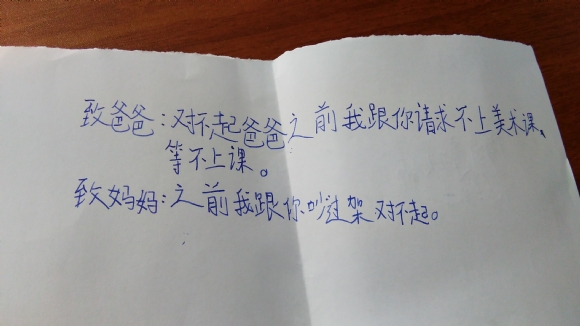 致爸爸：对不起爸爸之前我跟你请求不上美术课、
等不上课。
致妈妈：之前我跟你吵过架对不起。